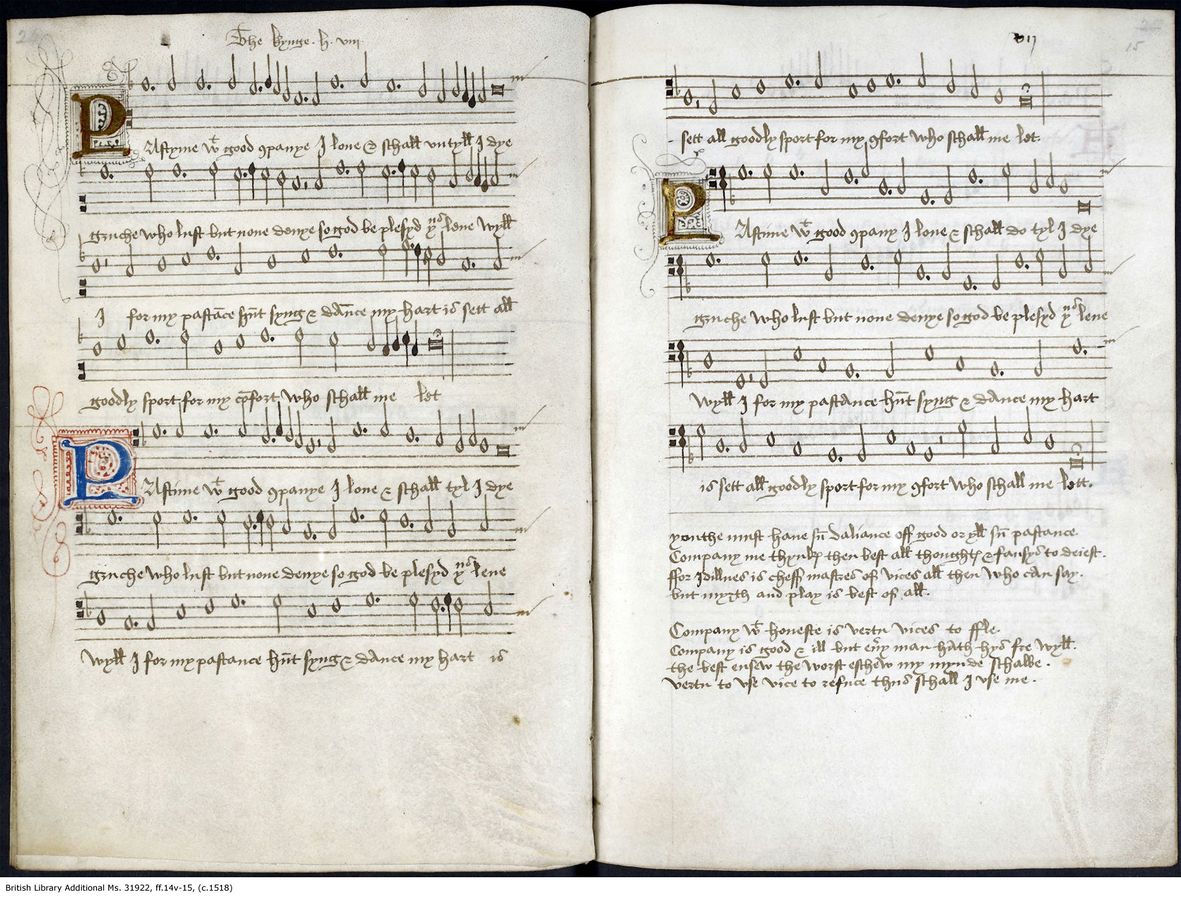 The kynge .h. viii
PAstyme wt good ꝯpanye I loue & schall vntyll I dye
gruche who lust but none denye so god be plesyd þus leue wyll
I for my pastāce hūt syng & dāce my hart is sett all
goodly sport for my cōfort who schall me let
PAstime wt good ꝯpanye I loue & schall tyl I dye
gruche who lust but none denye so god be plesyd þus leue
wyll I for my pastance hūt syng & dance my hart is
vij
15
sett all goodly sport for my ꝯfort who schall me let.
PAstime wt good ꝯpany I loue & schall do tyl I dye
gruche who lust but none denye so god be plesyd þus leue
wyll I for my pastance hūt syng & dance my hart
is sett all goodly sport for my ꝯfort who schall me lett.
youthe must haue sū daliance off good or yll sū pastance.
Company me thynkꝭ then best all thoughtꝭ & fansys to deiest.
ffor Idillnes is cheff mastres of vices all then who can say.
but myrth and play is best of all.
Company wt honeste is vertu vices to ffle.
Company is good & ill but eūy man hath hys fre wyll.
the best ensew the worst eschew my mynde schalbe.
vertu to vse vice to refuce thus schall I vse me.
British Library Additional Ms. 31922, ff.14v-15, (c.1518)